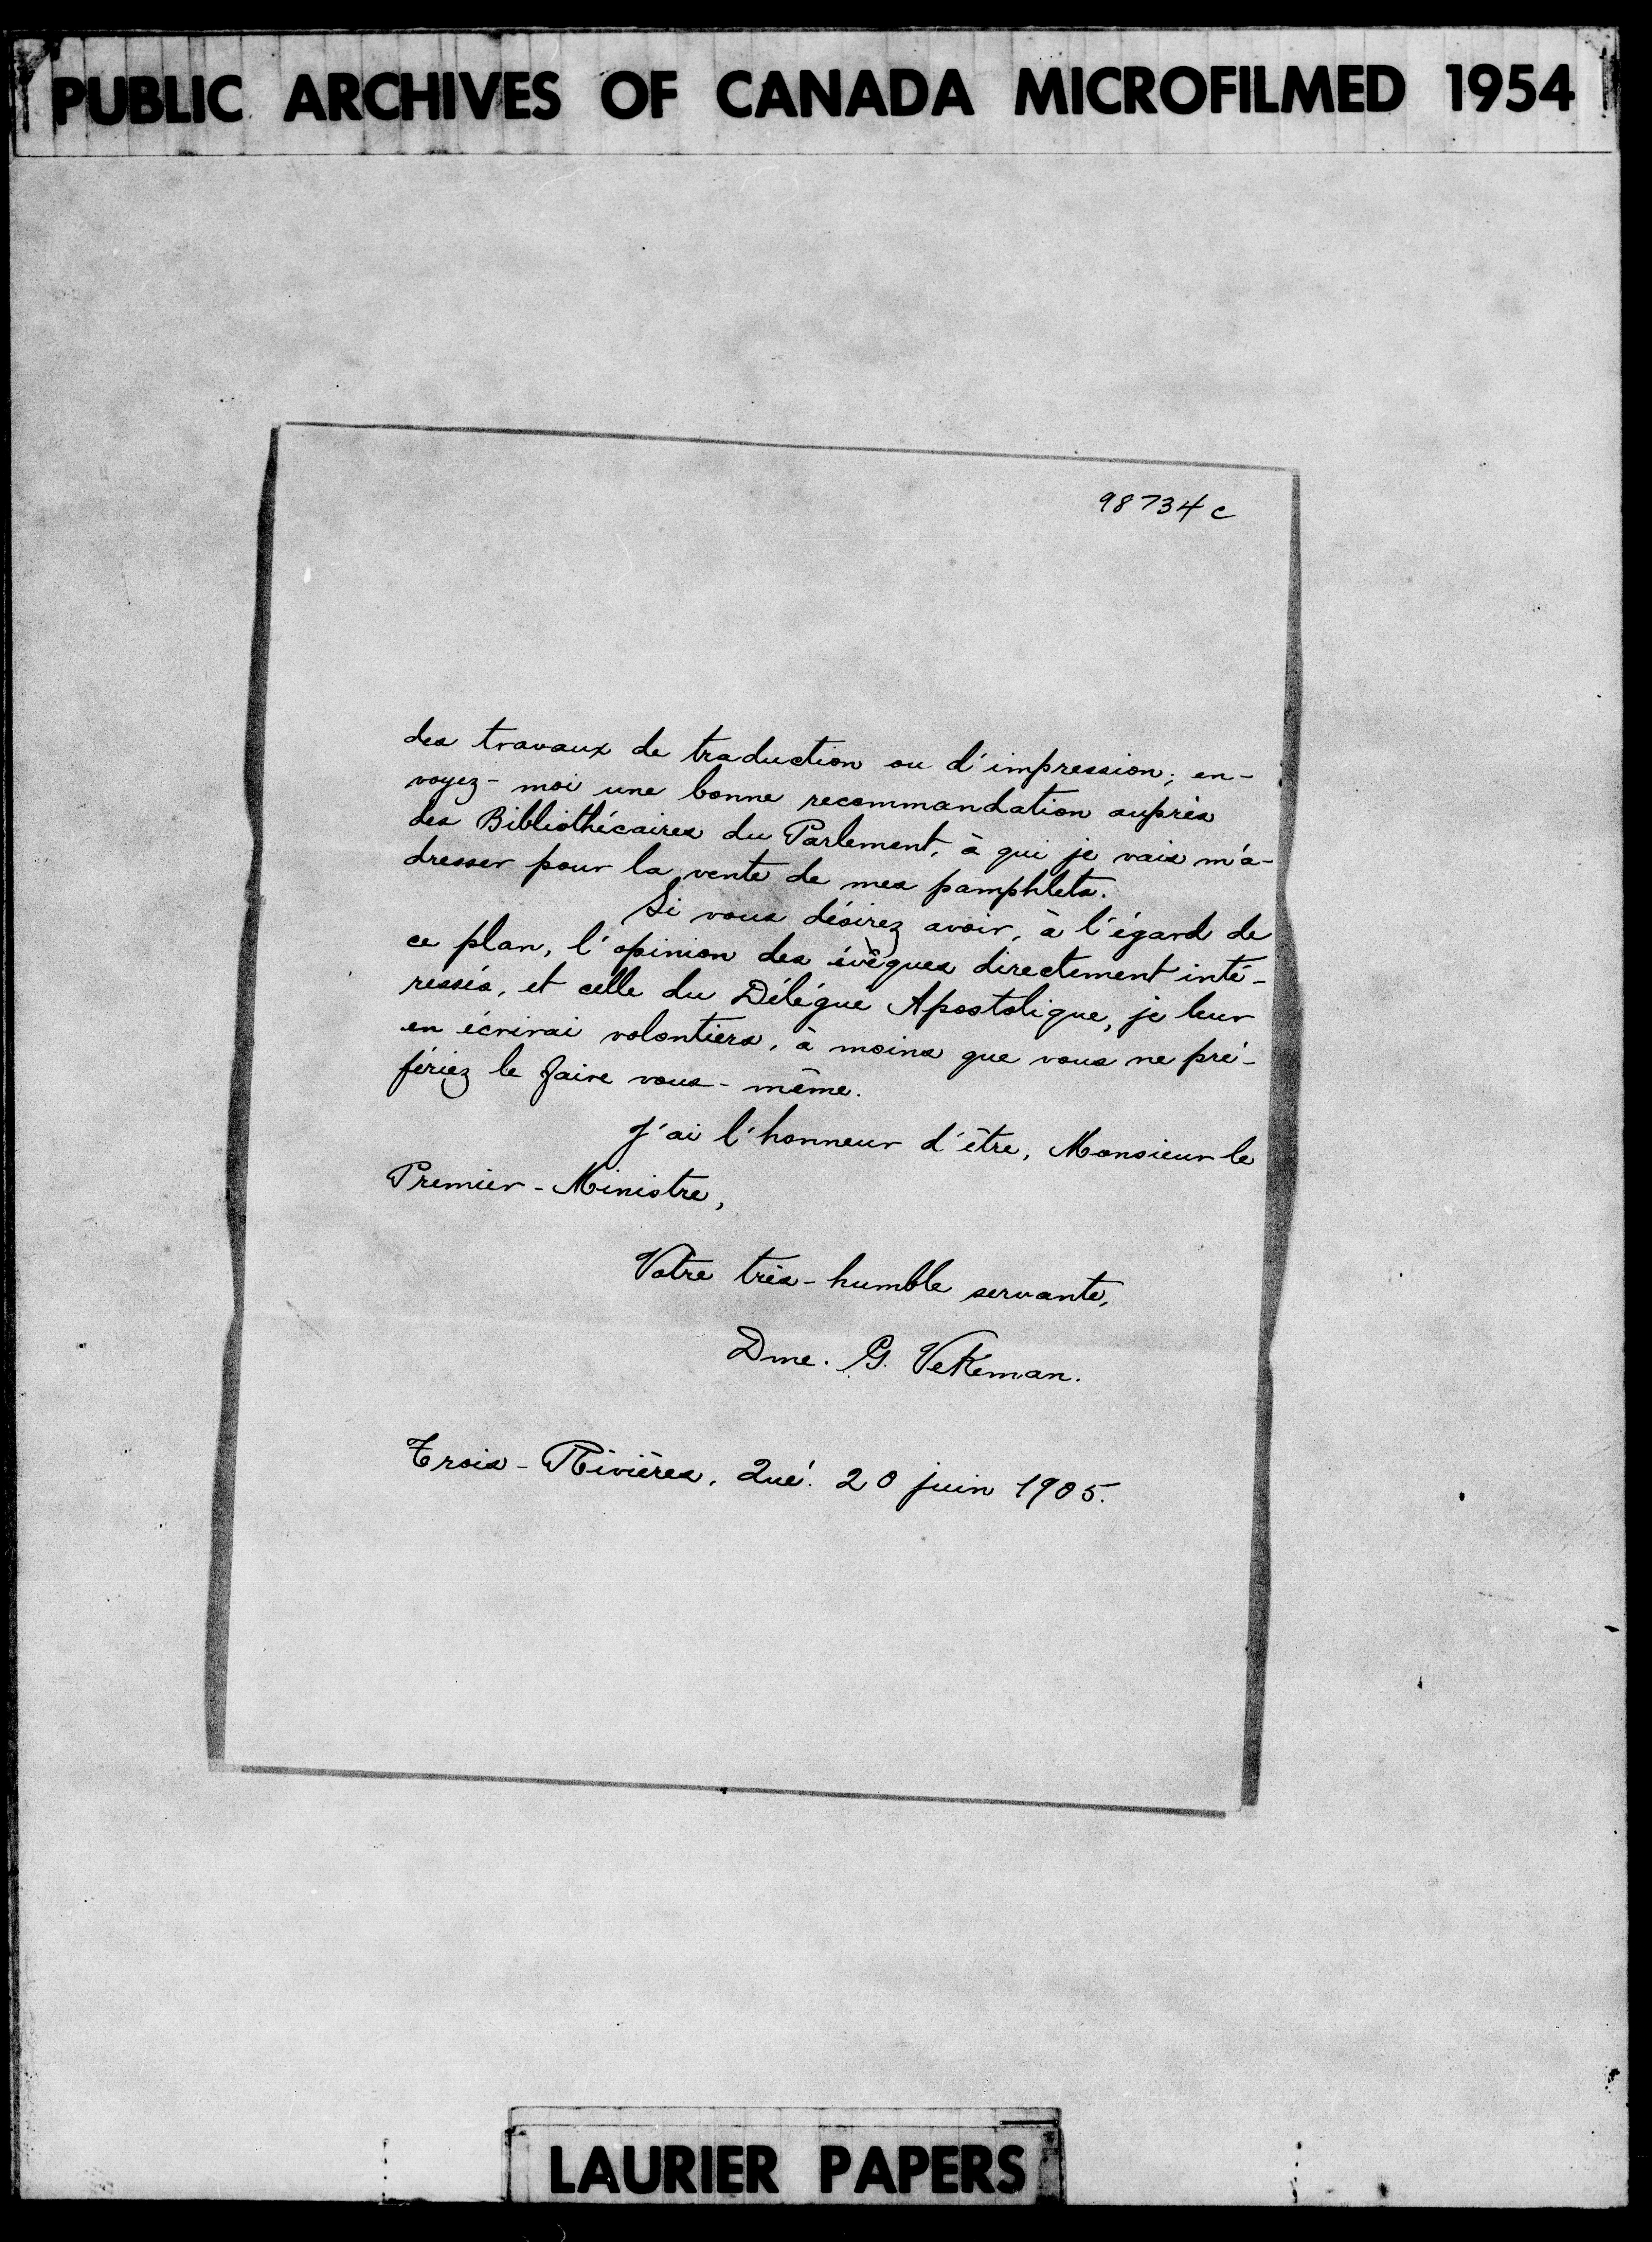 PUBLIC ARCHIVES OF CANADA MICROFILMED 1954
98734 c
des travaux de traduction ou d'impression; en-
voyez-moi une bonne recommandation auprès
des Bibliothécaires du Parlement, à qui je vais m'a-
dresser pour la vente de mes pamphlets.
Si vous désirez avoir, à l'égard de
ce plan, l'opinion des évêques directement inté-
ressés, et celle du Délégué Apostolique, je leur
en écrirai volontiers, à moins que vous ne pré-
fériez le faire vous-même.
J'ai l'honneur d'être, Monsieur le
Premier-Ministre,
Votre très-humble servante,
Dme. G. Vekeman.
Trois-Rivières, Qué. 20 juin 1905.
LAURIER PAPERS